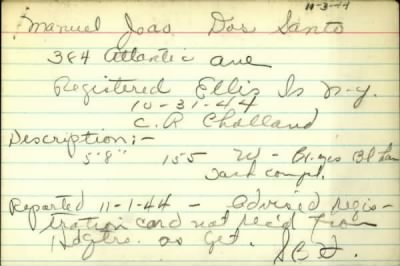 11-3-44
Manuel Joao Dos Santo
384 Atlantic ave
Registered Ellis Is N-y.
10-31-44
C. R Cholland
Description:-
5'8" 155 W - Bl. yes Bl
Dark compl.
Reported 11-1-44 - advised regis-
tration card not rec'd from
Hdqtrs. as yet.